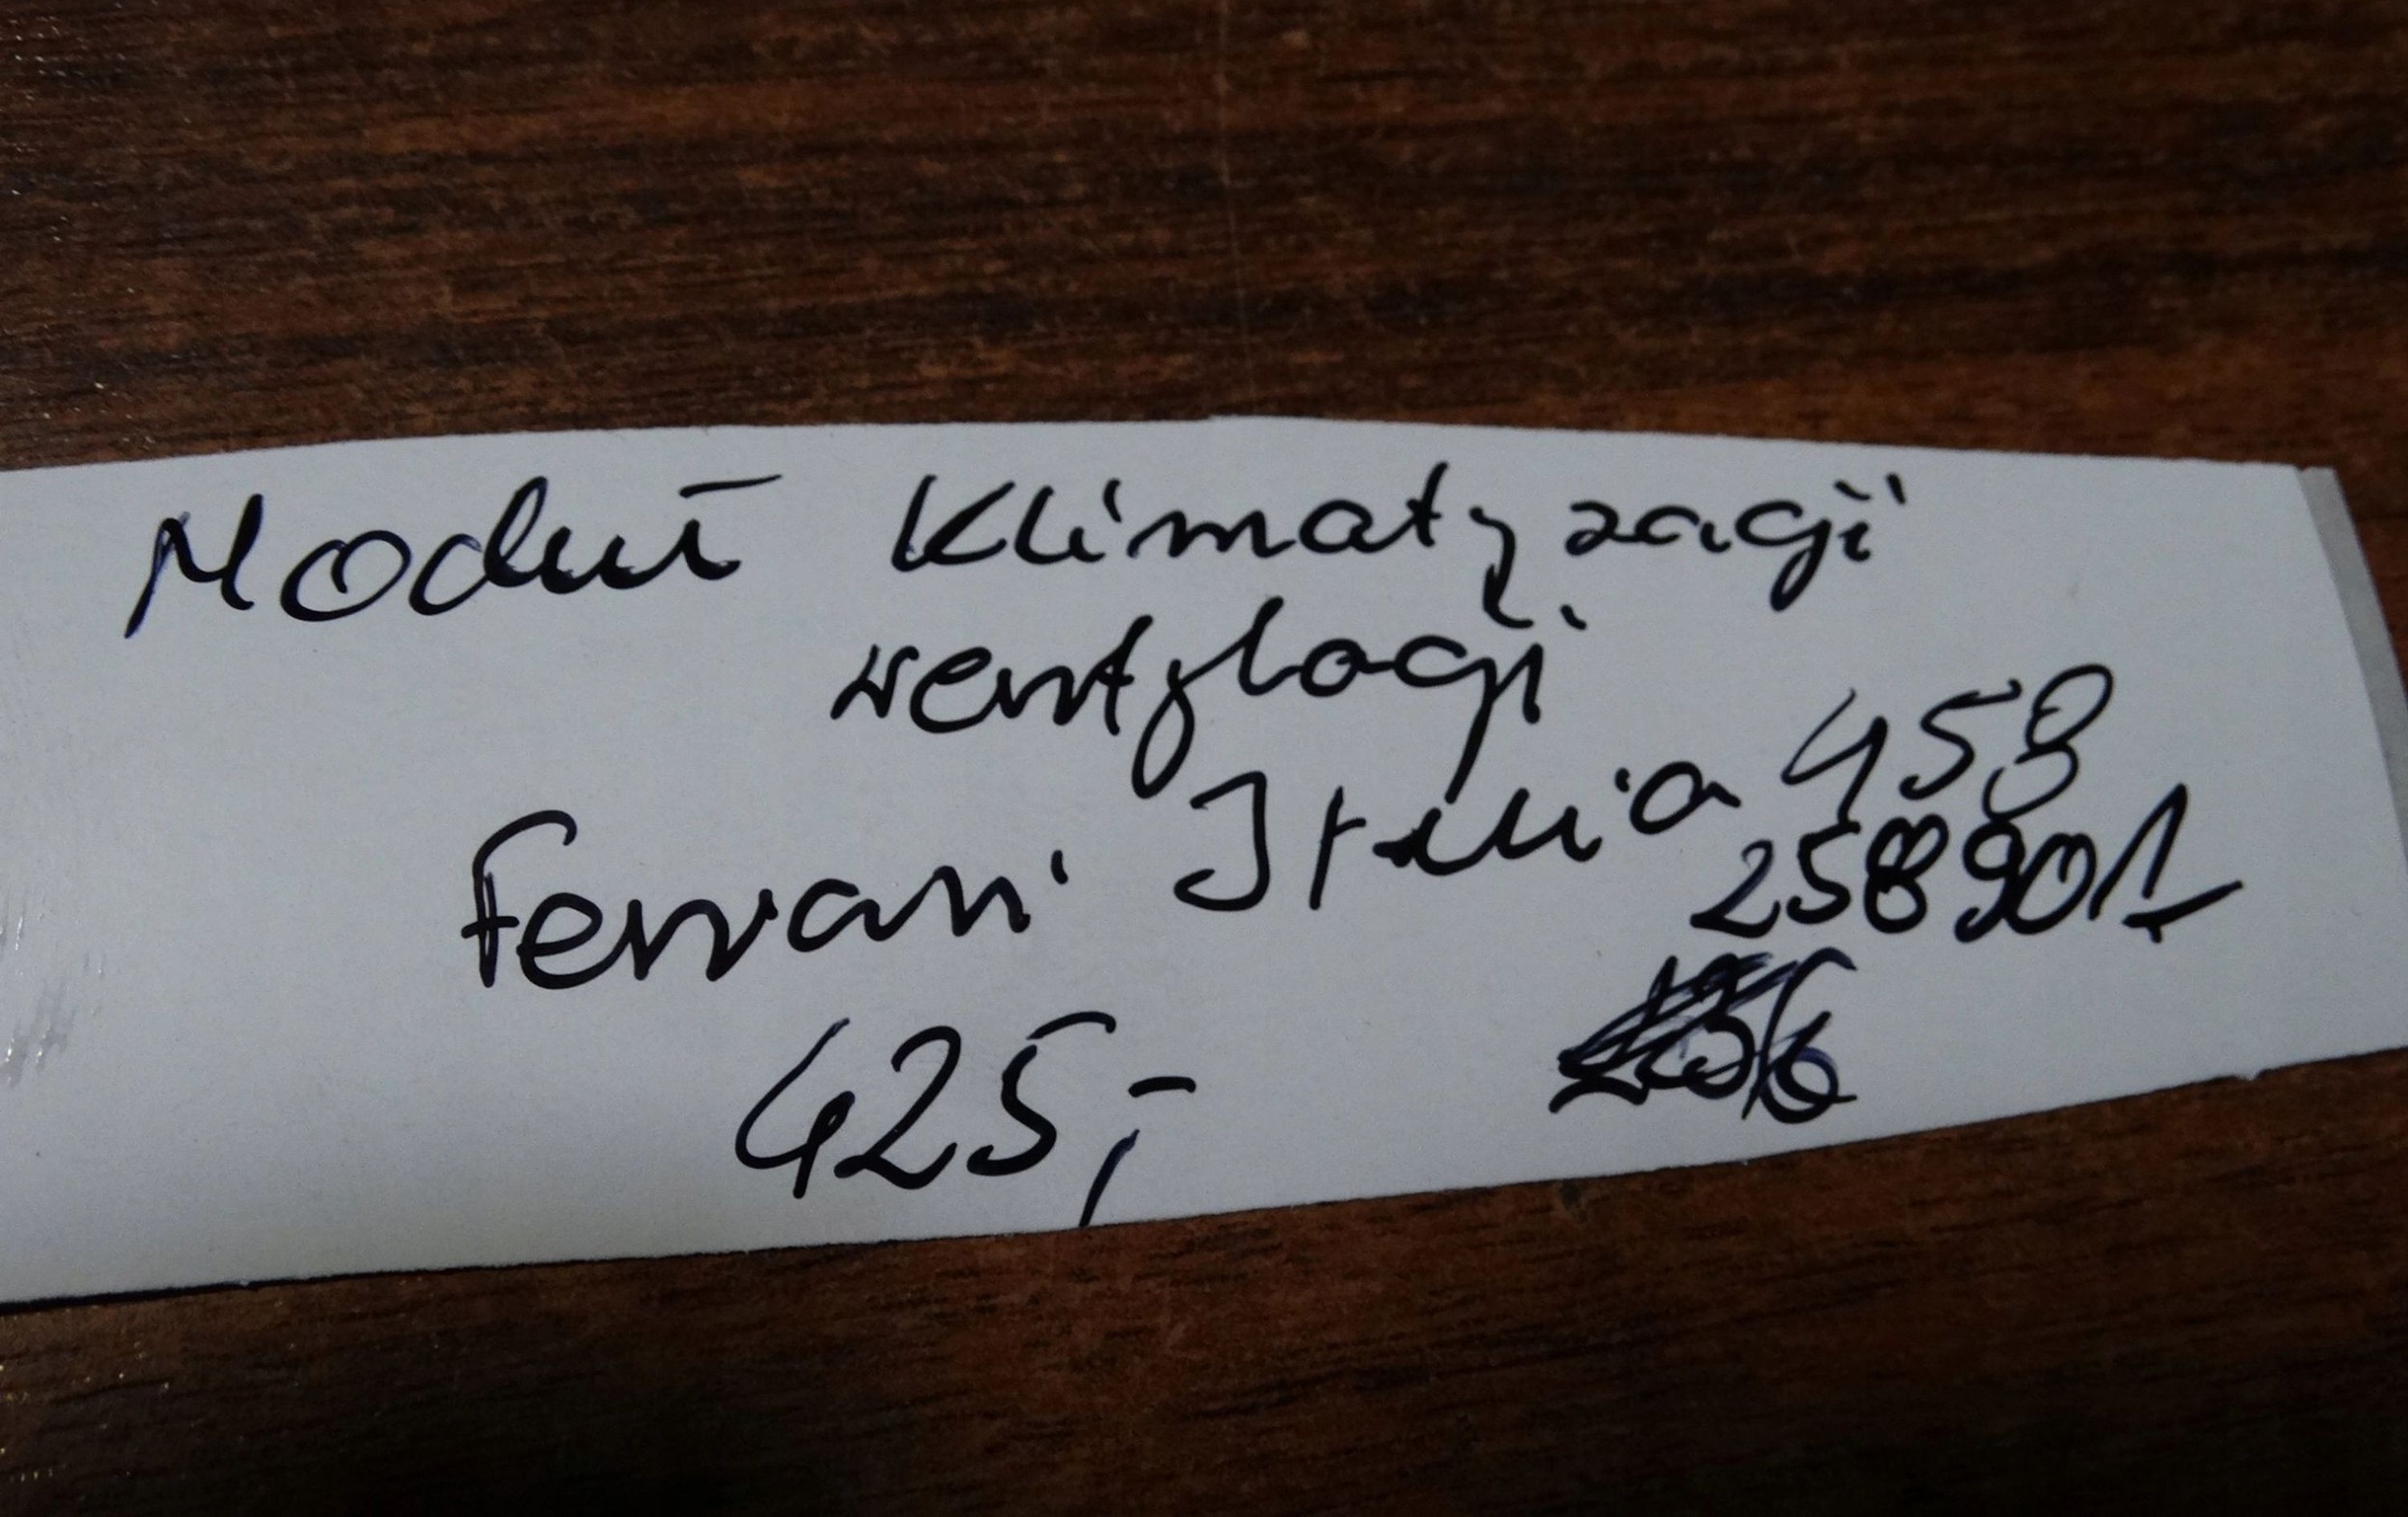 Moduł Klimatyzacji
wentylacji
Ferrari Italia 458
258901
425,-